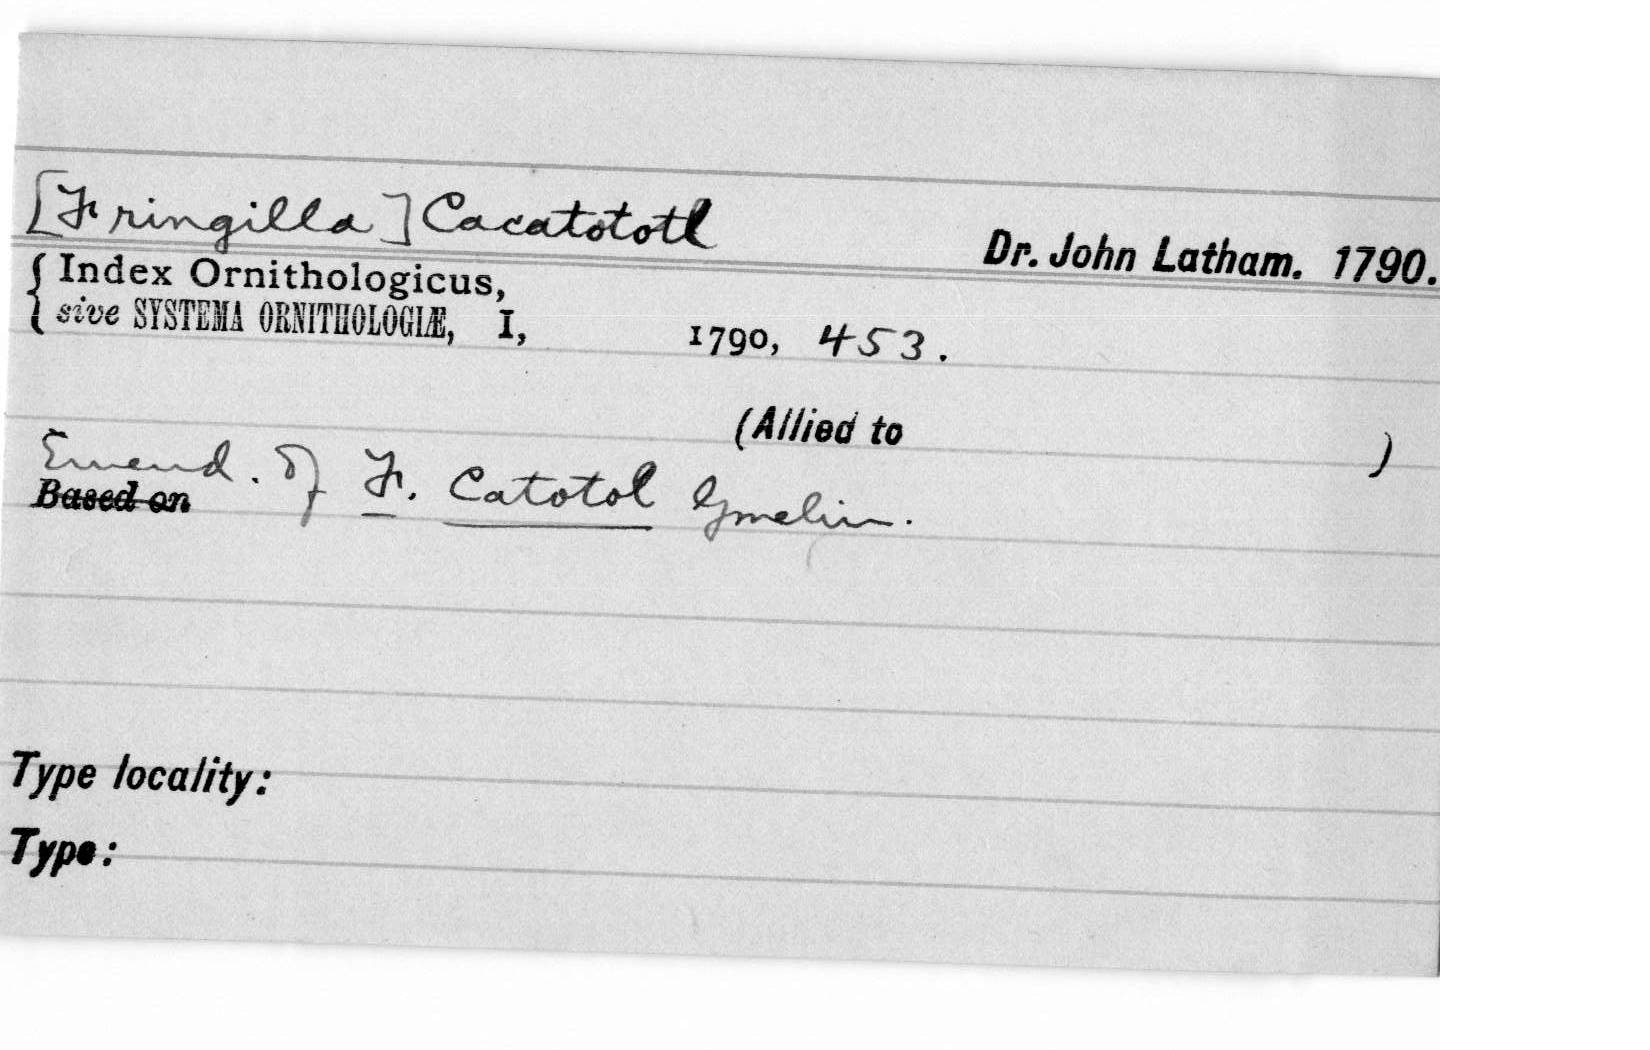 [Fringilla] Cacatototl
Dr. John Latham. 1790.
Index Ornithologicus,
sive SYSTEMA ORNITHOLOGIÆ, I, 1790, 453.
(Allied to )
Emend. of F. Catotol Gmelin.
Based on
Type locality:
Type: